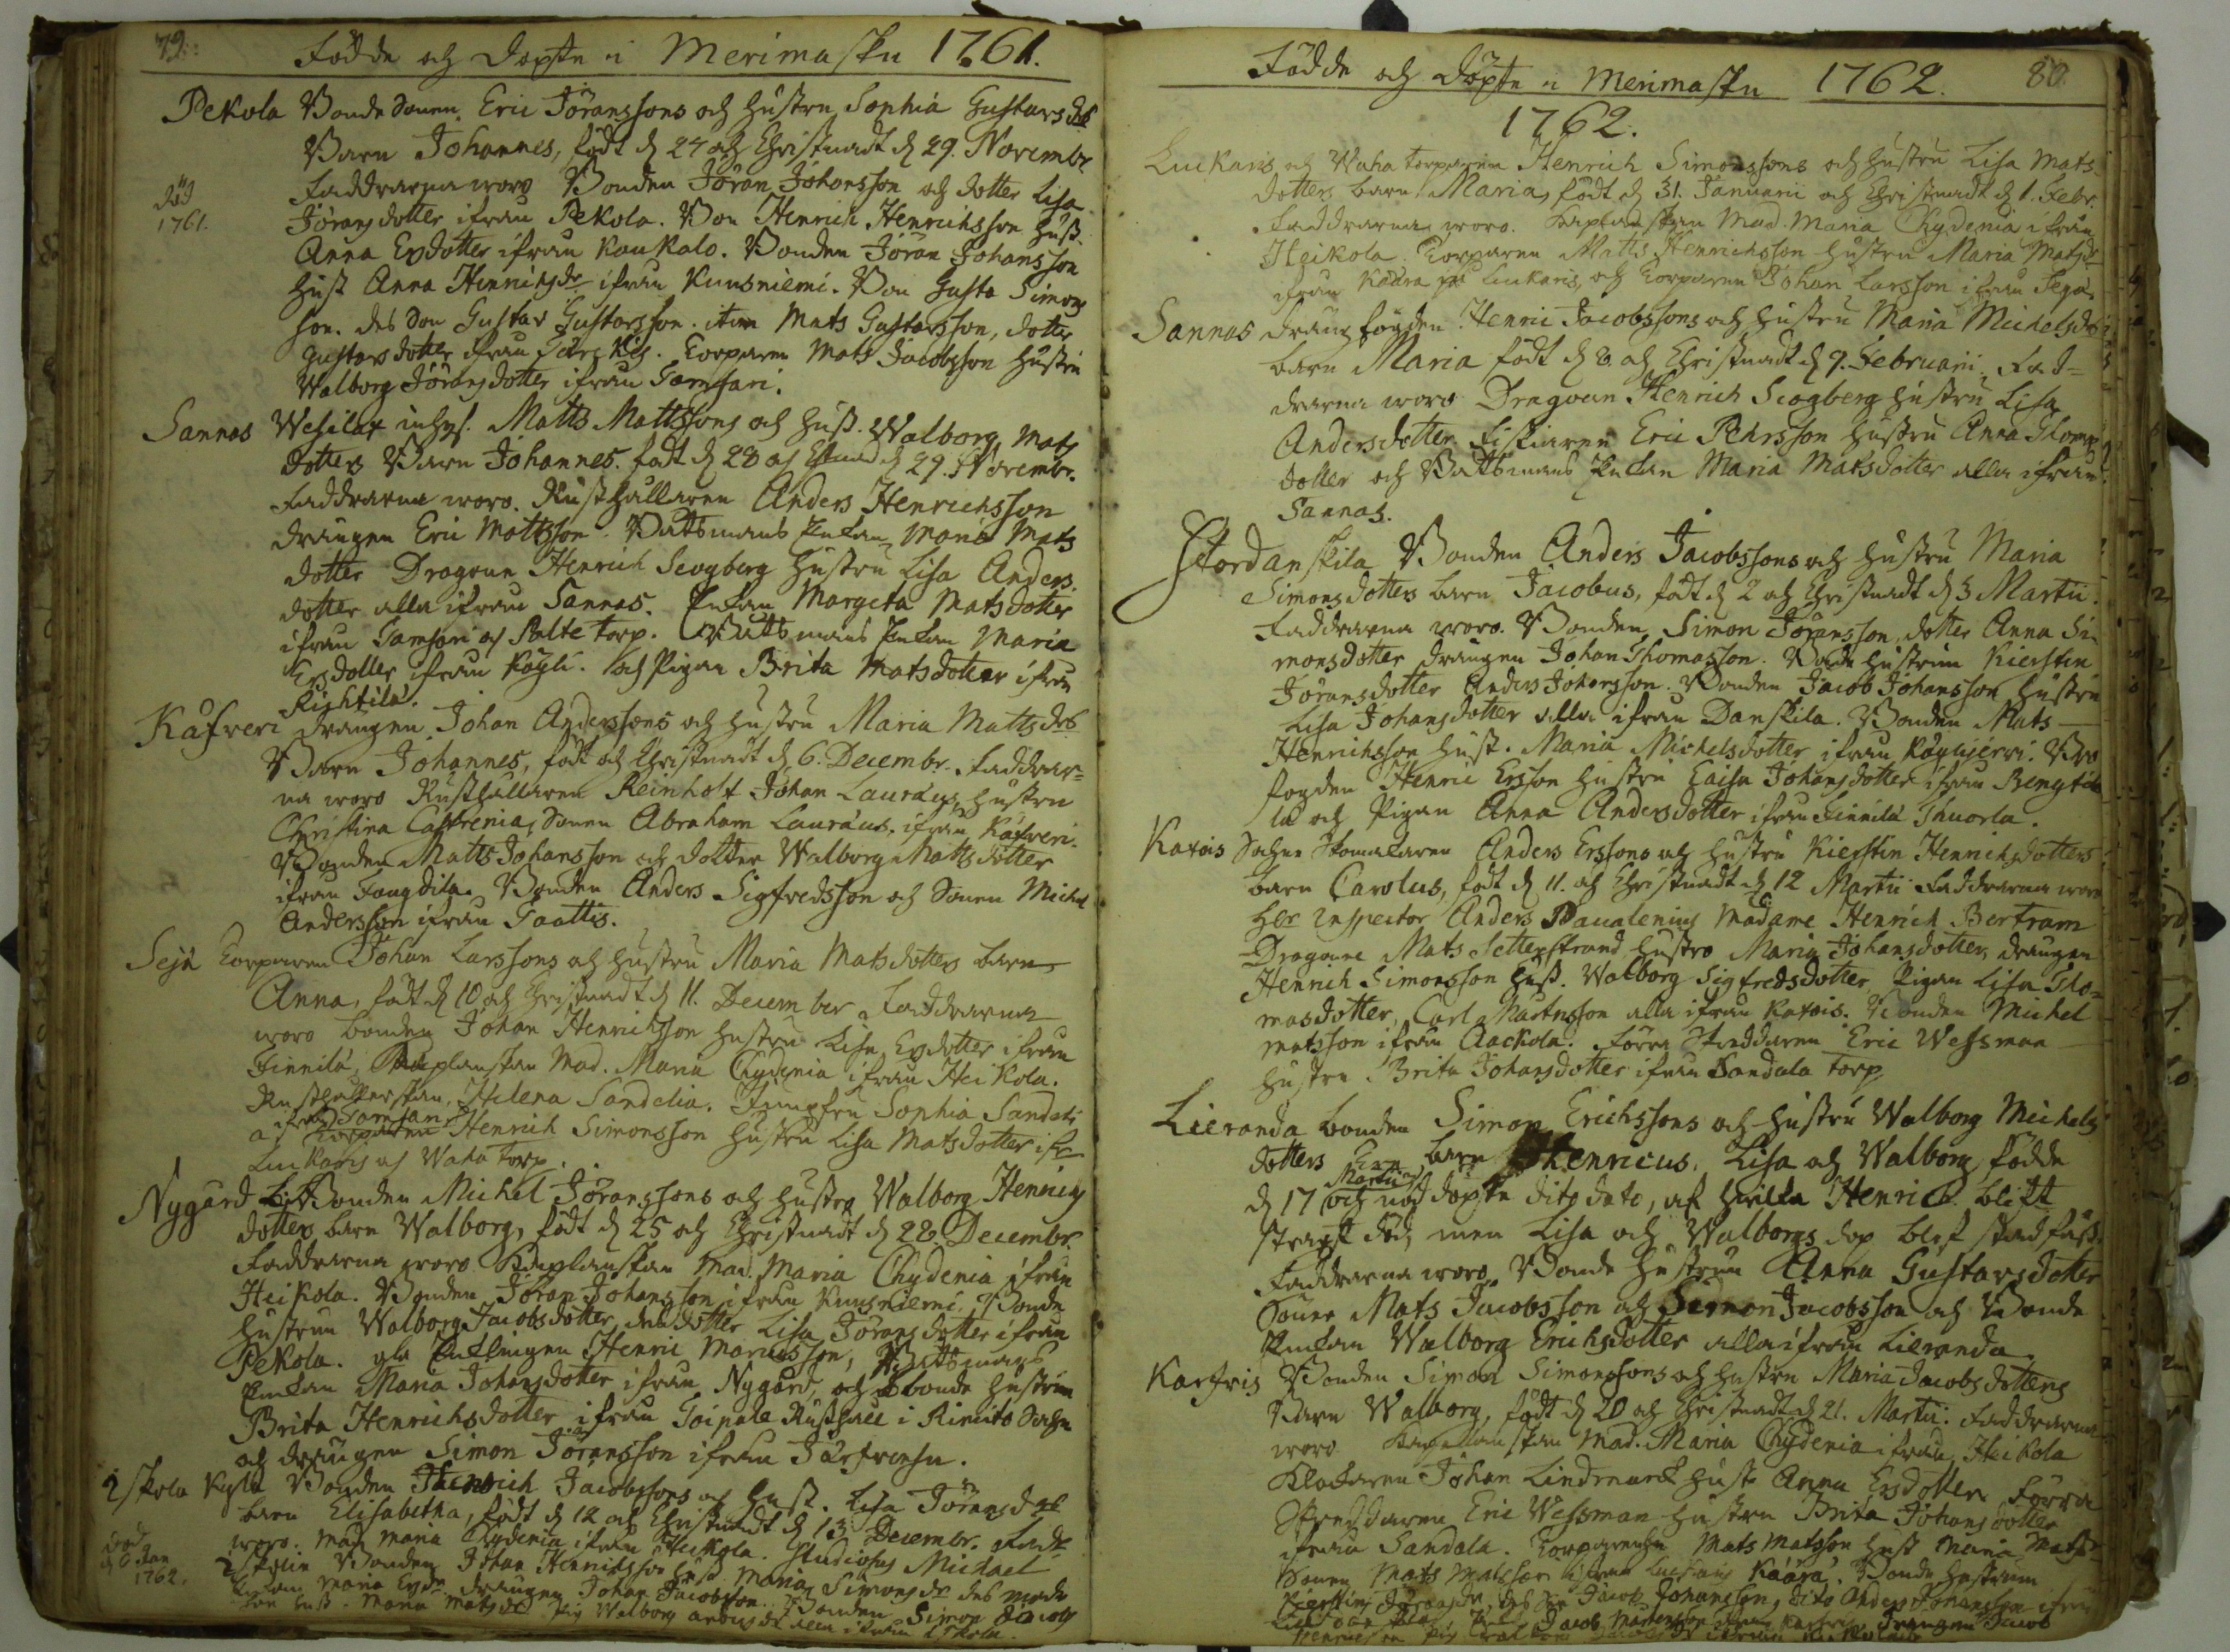 79.
Födde och Döpte i Merimasku 1761.
Pekola Bonde Sonen Eric Jöranssons och Hustru Sophia Gustavsdr
Barn Johannes, född d 24 och Christnadt d 29. Novembr
död Faddrarna woro Bonden Jöran Johansson och dotter Lisa
1761. Jöransdotter ifrån Pekola. Bon Henrich Henrichsson Hust.
Anna Ersdotter ifrån Kaukalo. Bonden Jöran Johansson
Hust Anna Henrichsdr ifrån Kuusniemi. Bon Gusta Simons
son. des Son Gustav Gustavsson. item Mats Gustavsson, dotter
Gustavsdotter ifrån. Torparen Mats Jacobsson Hustru
Walborg Jöransdotter ifrån Samsari.
Sannas Matts Mattssons och Hust. Walborg Mats
dotters Barn Johannes. född d 28 och d 29. Novembr.
Faddrarna woro. Rusthållaren Anders Henrichsson
drängen Eric Mattsson. Båttsmans Enkan Maria Mats
dotter Dragoun Henrich Scogberg Hustru Lisa Anders
dotter alla ifrån Sannas. Enkan Margeta Matsdotter
ifrån Samsari och Palte torp. Båttsmans Enkan Maria
Ersdotter ifrån Köyli. och Pigan Brita Matsdotter ifrån
Kåfveri drängen Johan Anderssons och Hustru Maria Mattsdr
Barn Johannes, född och Christnadt d 6. Decembr. Faddrar-
na woro Rusthållaren Reinholt Johan Lauræus, Hustru
Christina Castrenia, Sonen Abraham Lauræus. ifrån Kåfveri.
Bonden Matts Johansson och dotter Walborg Mattsdotter
ifrån. Bonden Anders Sigfredsson och Sonen Michel
Andersson ifrån Taattis.
Seja Torparen Johan Larssons och Hustru Maria Matsdotters barn
Anna, född d 10 och Christnadt d 11. December Faddrarna
woro bonden Johan Henrichsson Hustru Lisa Ersdotter ifrån
Finnilä, Kaplanskan Mad. Maria Chydenia ifrån Heikola.
Rusthållerskan, Helena Sandelia. Jumpfru Sophia Sandeli
a ifrån Samsari Torparen Henrich Simonsson Hustru Lisa Matsdotter ifr
Luckaris och Waha torp.
Nygård Bonden Michel Jöranssons och Hustru Walborg Henrichs
dotters barn Walborg, född d 25 och Christnadt d 28. Decembr.
Faddrarna woro Kaplanskan Mad. Maria Chydenia ifrån
Heikola. Bonden Jöran Johansson ifrån Kuusniemi. Bonde
Hustrun Walborg Jacobsdotter, des dotter Lisa Jöransdotter ifrån
Pekola. gla Enklingen Henric, Båttsmans
Enkan Maria Johansdotter ifrån Nygård, och bonde Hustrun
Brita Henrichsdotter ifrån Rusthåll i Rimito Sochn
och drängen Simon Jöransson ifrån.
Iskola Kylä Bonden Henrich Jacobssons och Hust. Lisa Jöransdr
barn Elisabetha, född d 12 och Christnadt d 13 Decembr. Fadr
död woro. Mad Maria Chydenia ifrån Heikola. Studiosus Michael
1762. Bonden Johan Henrichsson Hust Maria Simonsdr des
Maria Ersdr drängen Johan Jacobsson. Bonden Simon Jacobs
son Hust. Maria Matsdr Pig Walborg alla ifrån Iskola.
Födde och Döpte i Merimasku 1762. 80.
1762.
Luckaris och Waha torparen Henrich Simonssons och Hustru Lisa Mats
dotters barn Maria, född d 31. Januarii och Christnadt d 1. Febr.
Faddrarna woro. Kaplanskan Mad. Maria Chydenia ifrån
Heikola. Torparen Matts Henrichsson Hustru Maria Matsdr
ifrån Käära på Luckaris, och Torparen Johan Larsson ifrån Seja.
Sannas Henric Jacobssons och Hustru Maria Michelsdr
barn Maria född d 8 och Christnadt d 9. Februarii. Fad-
drarna woro Dragoun Henrich Scogberg Hustru Lisa
Andersdotter. Fiskiaren Eric Pehrsson Hustru Anna Thoms
dotter och Båttsmans Enkan Maria Matsdotter alla ifrån
Sannas.
Stordanskila Bonden Anders Jacobssons och Hustru Maria
Simonsdotters barn Jacobus, född d 2 och Christnadt d 3 Martii.
Faddrarna woro. Bonden Simon Jöransson, dotter Anna Si-
monsdotter drängen Johan Thomasson. Bonde Hustrun Kierstin
Jöransdotter Anders Johansson. Bonden Jacob Johansson Hustru
Lisa Johansdotter alla ifrån Danskila. Bonden Mats
Henrichsson Hust. Maria Michelsdotter ifrån. Bro
fogden Henric Ersson Hustru Caisa Johansdotter ifrån Bengtä
lä och Pigan Anna Andersdotter ifrån Finnilä Thuorla.
Katois Sochne Skomakaren Anders Erssons och Hustru Kierstin Henrichsdotters
barn Carolus, född d 11. och Christnadt d 12 Martii Faddrarna woro
Her Inspector Anders Madame Henrich Bertram
Dragoune Mats Hustro Maria Johansdotter, drängen
Henrich Simonsson Hust. Walborg Sigfredsdotter Pigan Lisa Tho-
masdotter, Carl Martensson alla ifrån Katois. Bonden Michel
Matsson ifrån. Förra Skreddaren Eric Wessman
Hustru Brita Johansdotter ifrån Sandala torp
Lieranda bonden Simon Erichssons och Hustru Walborg Michels
dotters barn Henricus. Lisa och Walborg födde
d 17 Martii och nöd döpte dito dato, af hvilka Henric bleft
strax död, men Lisa och Walborgs dop blef stadfäst.
Faddrarna woro Bonde Hustrun Anna Gustavsdotter
Sonen Mats Jacobsson och Simon Jacobsson och Bonde
Enkan Walborg Erichsdotter alla ifrån Lieranda.
Karfvis Bonden Simon Simonssons och Hustru Maria Jacobsdotters
Barn Walborg, född d 20 och Christnadt d 21. Martii. Faddrarna
woro Kaplanskan Mad. Maria Chydenia ifrån Heikola
Klockaren Johan Lindmarck Hust Anna Ersdotter. Förra
Skreddaren Eric Wessman Hustru Brita Johansdotter
ifrån Sandala. Torparen Mats Matsson Hust Maria Matsdr
Sonen Mats Matsson ifrån Luckaris Käärä. Bonde Hustrun
Kierstin Jöransdr, des Son Jacob Johansson, dito Anders Johansson ifrån
Jacob Martensson drängen Jacob